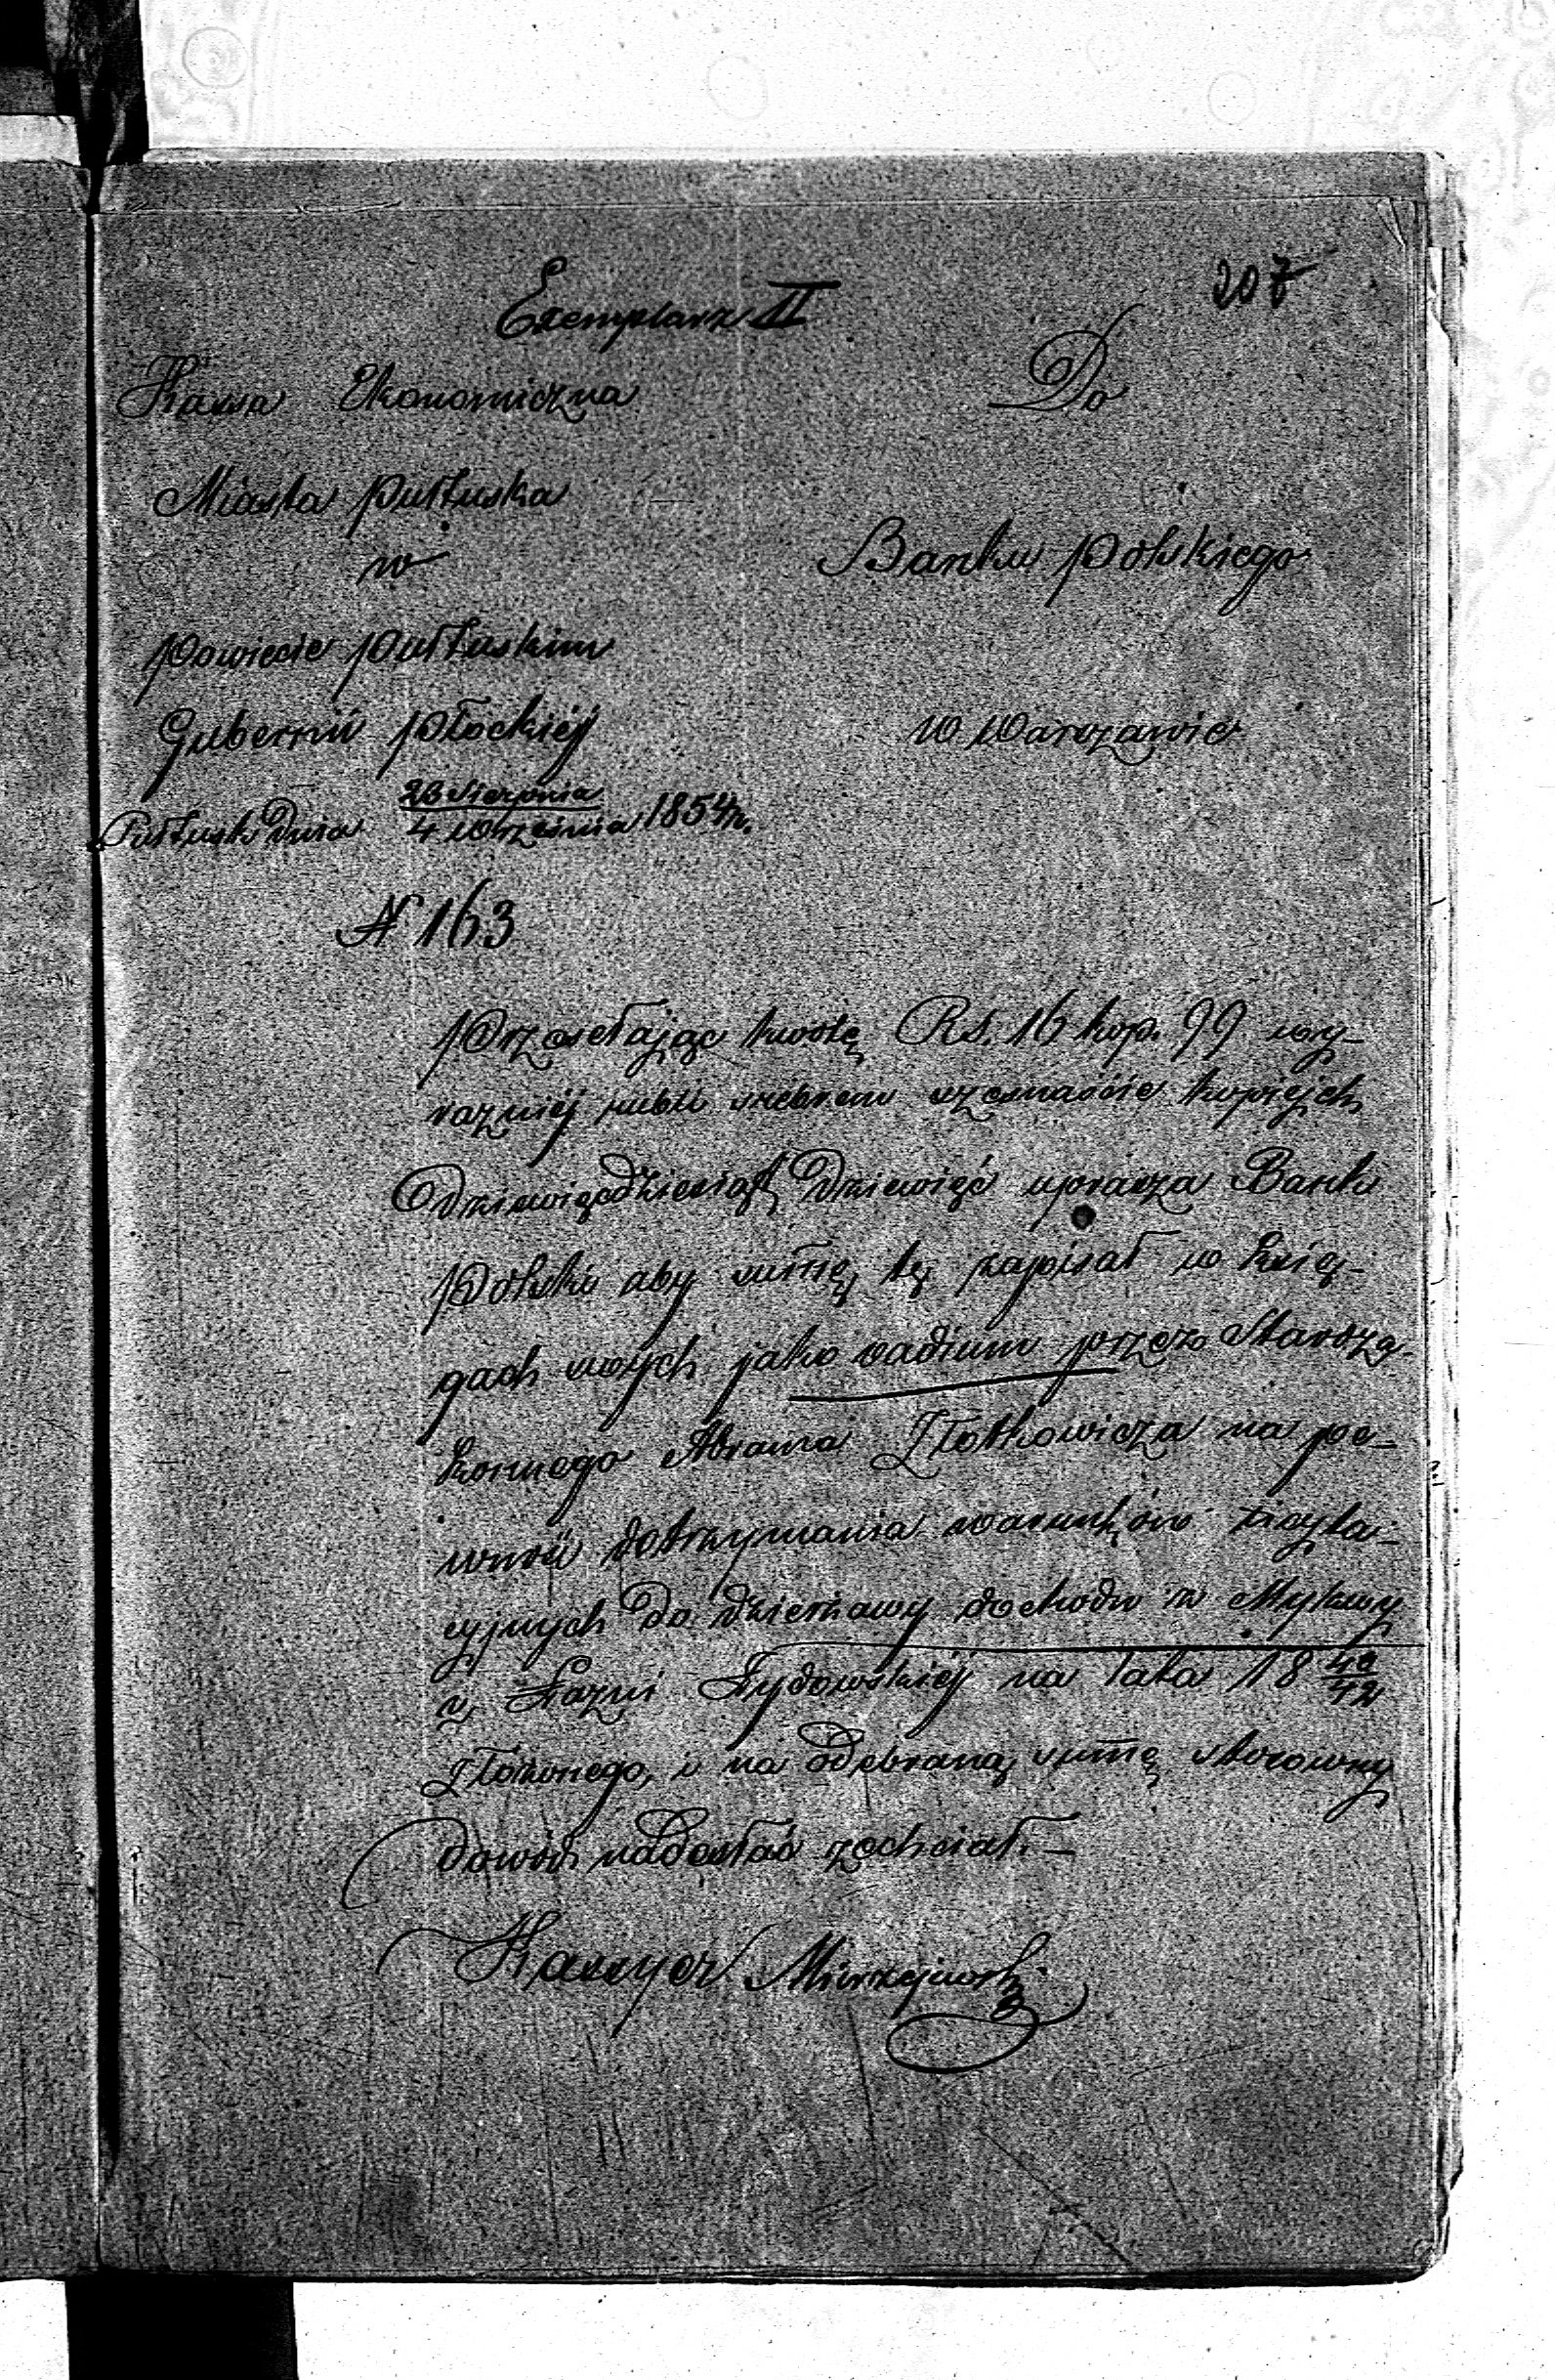 207
Exemplarz II
Kassa Ekonomiczna
Miasta Pułtuska
w
Powiecie Pułtuskim
Gubernii Płockiéj
Pułtusk Dnia 23 Sierpnia / 4 Września 1854 r.
N 163
Do
Banku Polskiego
w Warszawie
Przesełając kwotę Rs. 16 kop. 99 wy-
raźniéj rubli srebrem szesnaście kopiejek
Dziewięćdziesiąt Dziewięć uprasza Bank
Polski aby summę tę zapisał w księ-
gach swych jako vadium przez Starozą-
konnego Abrama Złotkowicza na pe-
wność dotrzymania warunków licyta-
cyjnych do dzierżawy dochodu z Mykwy
z Łaźni Żydowskiéj na lata 18 40/42
złożonego, i na odebraną summę stosowny
dowód nadesłać zechciał. —
Kassyer Mierzejewski